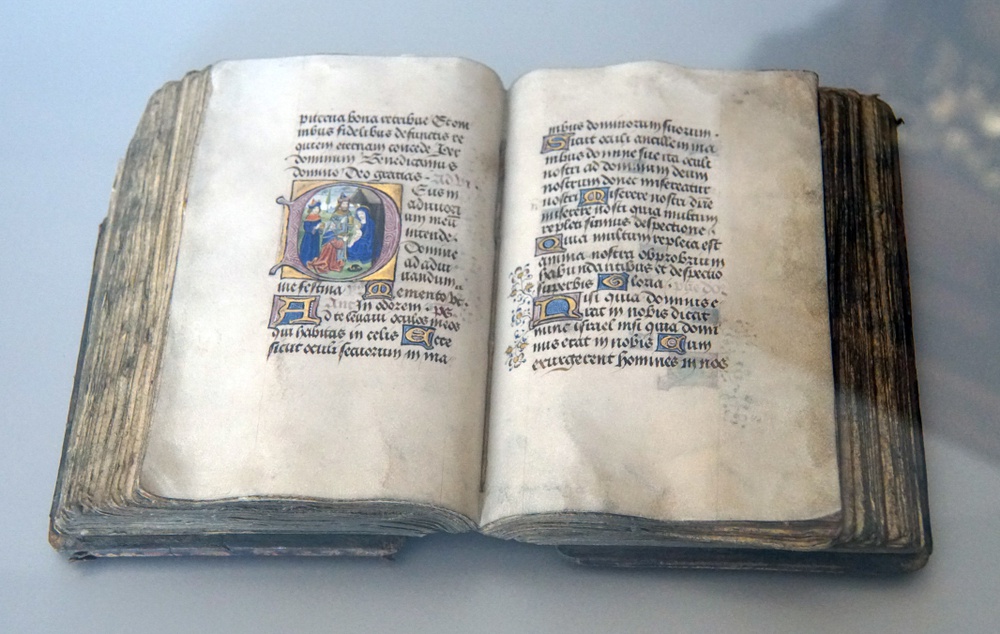 puterna bona retribue Et om
nibus fidelibus defunctis re
quiem eternam concede Per
dominum Benedicamus
domino Deo gratias Ad vi
Deus in
adiutori
um meu
intende
Domine
ad adiu
uandum
me festina Memento ps.
Ant In odorem ps
Ad te leuaui oculos meos
qui habitas in celis Ecce
sicut oculi seruorum in ma
nibus dominorum suorum
Sicut oculi ancille in ma
nibus domine sue ita oculi
nostri ad dominum deum
nostrum donec misereatur
nostri Miserere nostri dne
miserere nostri quia multum
repleti sumus despectione
Quia multum repleta est
anima nostra obprobrium
habundantibus et despectio
superbis Gloria
Nisi quia dominus e
rat in nobis dicat
nunc israel nisi quia domi
nus erat in nobis Cum
exurgerent homines in nos